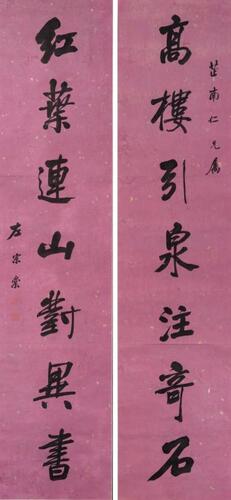 芷南仁兄属
高樓引泉注奇石
紅葉連山對異書
左宗棠